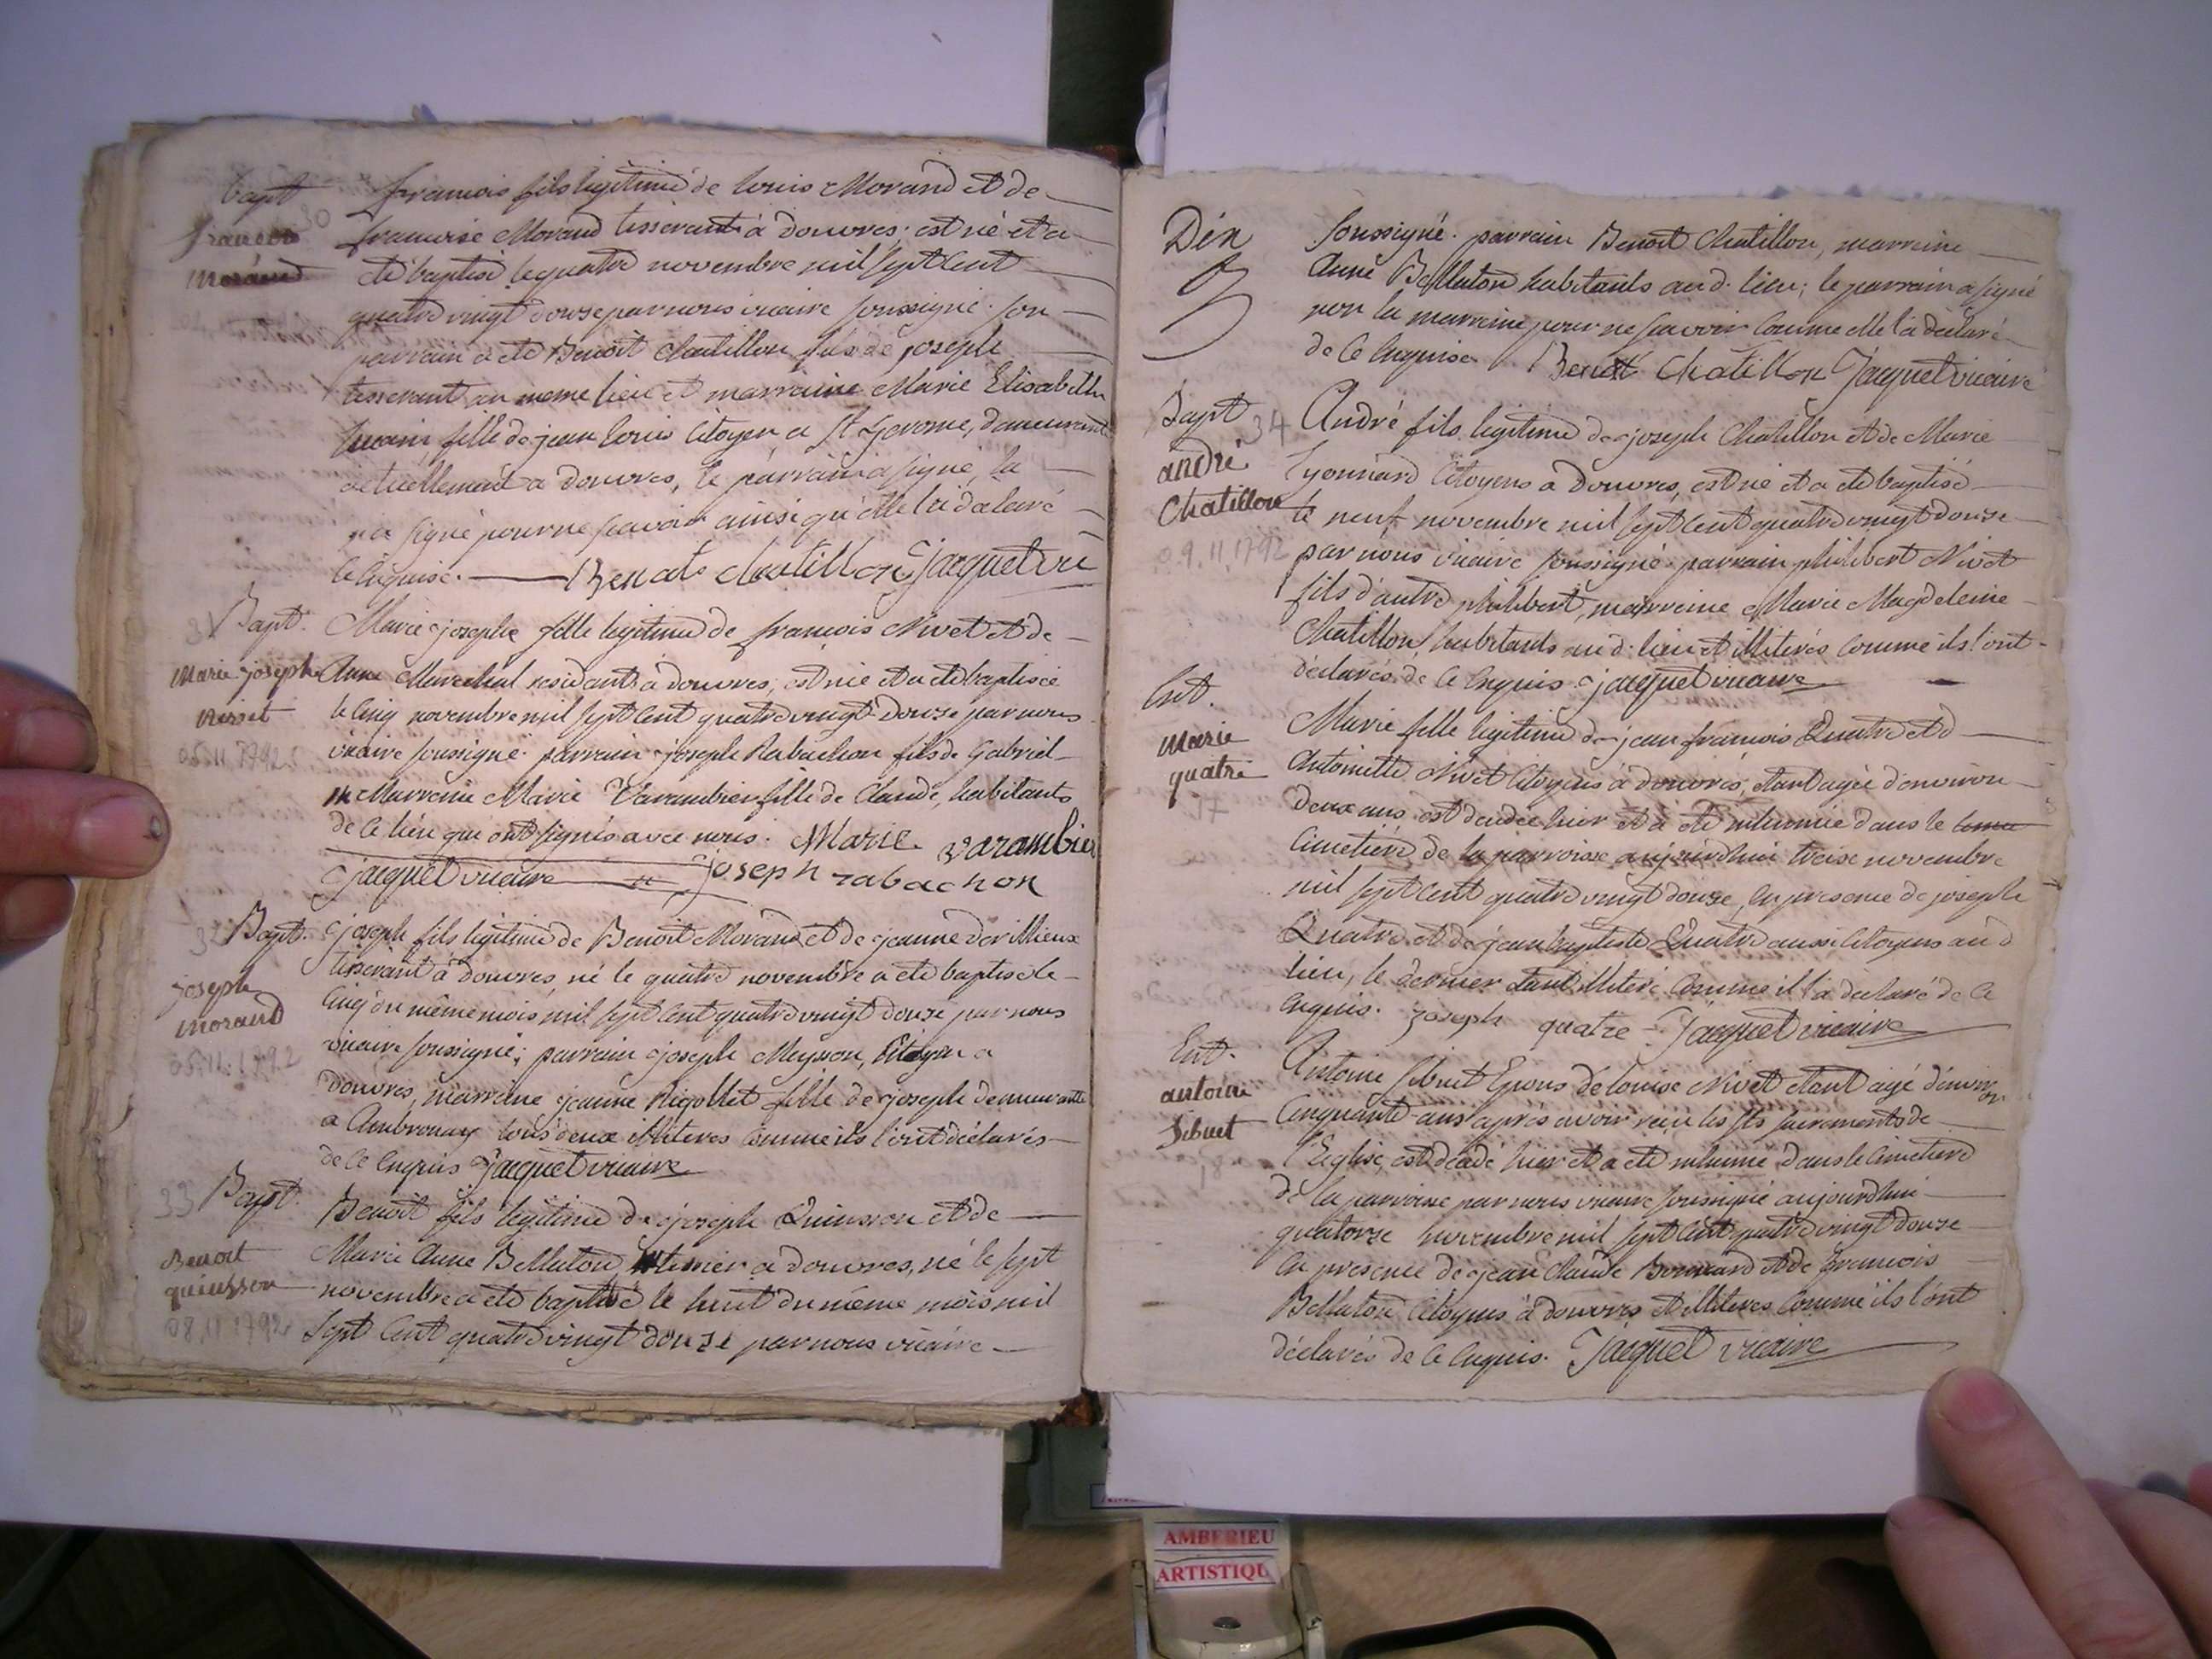 Bapt
30
francois
Morand
francois fils legitime de louis Morand et de
francoise Morand tisserant à douvres est né et a
été baptisé le quatre novembre mil sept cent
quatre vingt douse par nous vicaire soussigné. son
parrain a été Benoit Chatillon fils de joseph
tisserant au meme lieu et marraine Marie Elisabeth
fille de jean louis Citoyen a St jerome, demeurant
actuellement a douvres, le parrain a signé, la
n'a signé pour ne scavoir ainsi qu'elle l'a declaré
de ce enquise. Benoit chatillon Jacquet vic
31
Bapt.
Marie josephe
Nivet
05.11.1792
Marie josephe fille legitime de francois Nivet et de
Anne Marechal residants à douvres, est née et a été baptisée
le cinq novembre mil sept cent quatre vingt douse par nous
vicaire soussigné. parrain joseph Rabachon fils de Gabriel
Marreine Marie Varambier fille de Claude, habitants
de ce lieu qui ont signés avec nous. Marie varambier
Jacquet vicaire joseph rabachon
32
Bapt.
joseph
morand
05.11.1792
joseph fils legitime de Benoit Morand et de jeanne dervillieux
tisserant à douvres, né le quatre novembre a été baptisé le
cinq du même mois mil sept cent quatre vingt douse par nous
vicaire soussigné; parrain joseph Meysson, Citoyen a
douvres, marreine jeanne Rigollet fille de joseph demeurante
a Ambronay tous deux illiteres comme ils l'ont déclarés
de ce enquis Jacquet vicaire
33
Bapt.
Benoit
quinsson
08.11.1792
Benoit fils legitime de joseph Quinsson et de
Marie Anne Bellaton a douvres, né le sept
novembre a été baptisé le huit du même mois mil
sept cent quatre vingt douse par nous vicaire
Dix
soussigné. parrain Benoit Chatillon, marreine
Anne Bellaton habitants aud. lieu; le parrain a signé
non la marreine pour ne scavoir comme elle l'a déclaré
de ce enquise. Benoit Chatillon Jacquet vicaire
Bapt
34
andré
Chatillon
09.11.1792
André fils legitime de joseph Chatillon et de Marie
Lyonnard Citoyens a Douvres, est né et a été baptisé
le neuf novembre mil sept cent quatre vingt douse
par nous vicaire soussigné. parrain philibert Nivet
fils d'autre philibert, marreine Marie Magdeleine
Chatillon, habitants aud. lieu et illiterés comme ils l'ont
déclarés de ce enquis. Jacquet vicaire
Ent.
Marie
quatre
17
Marie fille legitime de jean francois Quatre et d
Antoinette Nivet Citoyens a douvres, étant agée denviron
deux ans est decedée hier et a été inhumée dans le
cimetiere de la parroisse aujourdhui treise novembre
mil sept cent quatre vingt douse, en presence de joseph
Quatre et de jean baptiste Quatre aussi Citoyens aud
lieu, le dernier étant illiteré comme il l'a declaré de ce
enquis. joseph quatre Jacquet vicaire
Ent.
antoine
Sibuet
Antoine Sibuet Epoux de louise Nivet étant agé d'environ
cinquante ans après avoir reçu les sts sacrements de
l'Eglise, est décédé hier et a été inhumé dans le cimetiere
de la parroisse par nous vicaire soussigné aujourdhui
quatorze novembre mil sept cent quatre vingt douse
en presence de jean Claude Bonnard et de francois
Bellaton Citoyens à douvres et illiteres comme ils l'ont
déclarés de ce enquis. Jacquet vicaire
AMBERIEU
ARTISTIQU